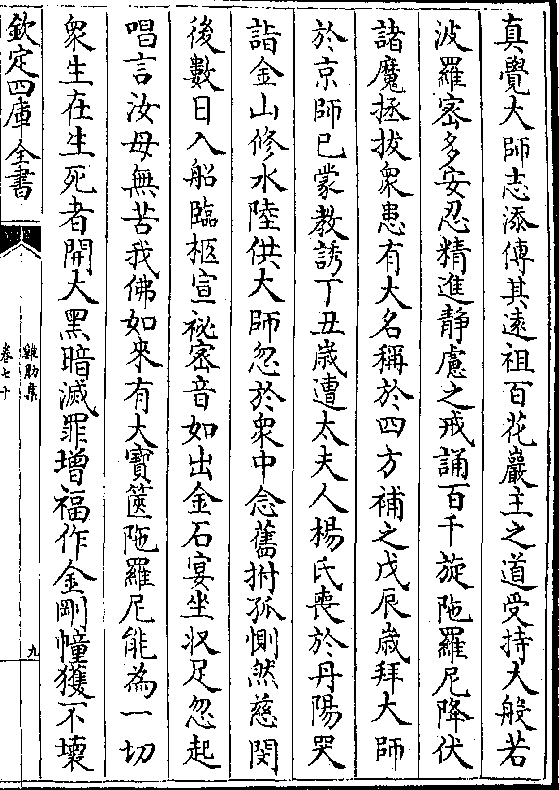 真覺大師志添傳其遠祖百花巖主之道受持大般若
波羅密多安忍精進靜慮之戒誦百千旋陁羅尼降伏
諸魔拯拔衆患有大名稱於四方補之戊辰歳拜大師
於京師已蒙教誘丁丑歳遭太夫人楊氏喪於丹陽哭
詣金山修水陸供大師忽於衆中念舊拊孤惻然慈閔
後數日入船臨柩宣祕密音如出金石宴坐収足忽起
唱言汝母無苦我佛如來有大寳篋陁羅尼能為一切
衆生在生死者開大黑暗滅罪増福作金剛幢獲不壊
欽定四庫全書
雞肋集
卷七十
九